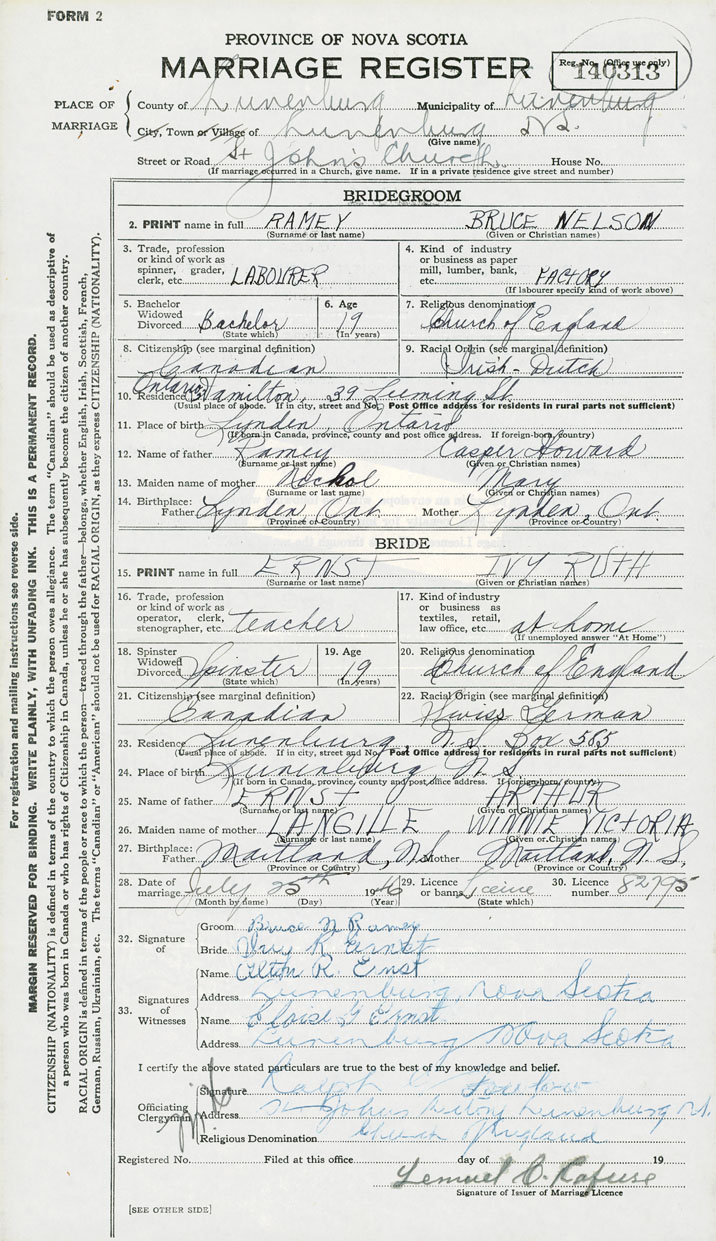 FORM 2
PROVINCE OF NOVA SCOTIA
MARRIAGE REGISTER
Reg. No. (Office use only)
140313
PLACE OF MARRIAGE
County of Lunenburg Municipality of Lunenburg
City, Town or Village of Lunenburg N.S.
(Give name)
Street or Road St John's Church House No.
(If marriage occurred in a Church, give name. If in a private residence give street and number)
BRIDEGROOM
2. PRINT name in full RAMEY BRUCE NELSON
(Surname or last name) (Given or Christian names)
3. Trade, profession or kind of work as spinner, grader, clerk, etc. LABOURER
4. Kind of industry or business as paper mill, lumber, bank, etc. FACTORY
(If labourer specify kind of work above)
5. Bachelor Widowed Divorced Bachelor
(State which)
6. Age 19
(In years)
7. Religious denomination Church of England
8. Citizenship (see marginal definition) Canadian
9. Racial Origin (see marginal definition) Irish-Dutch
10. Residence Ontario Hamilton, 39 Leeming St.
(Usual place of abode. If in city, street and No. Post Office address for residents in rural parts not sufficient)
11. Place of birth Lynden, Ontario
(If born in Canada, province, county and post office address. If foreign-born, country)
12. Name of father Ramey Casper Howard
(Surname or last name) (Given or Christian names)
13. Maiden name of mother Mary
(Surname or last name) (Given or Christian names)
14. Birthplace: Father Lynden Ont. Mother Lynden, Ont.
(Province or Country) (Province or Country)
BRIDE
15. PRINT name in full ERNST IVY RUTH
(Surname or last name) (Given or Christian names)
16. Trade, profession or kind of work as operator, clerk, stenographer, etc. teacher
17. Kind of industry or business as textiles, retail, law office, etc. at home
(If unemployed answer "At Home")
18. Spinster Widowed Divorced Spinster
(State which)
19. Age 19
(In years)
20. Religious denomination Church of England
21. Citizenship (see marginal definition) Canadian
22. Racial Origin (see marginal definition) Swiss German
23. Residence Lunenburg, N.S. Box 565
(Usual place of abode. If in city, street and No. Post Office address for residents in rural parts not sufficient)
24. Place of birth Lunenburg, N.S.
(If born in Canada, province, county and post office address. If foreign-born, country)
25. Name of father ERNST ARTHUR
(Surname or last name) (Given or Christian names)
26. Maiden name of mother LANGILLE WINNIE VICTORIA
(Surname or last name) (Given or Christian names)
27. Birthplace: Father Maitland, N.S. Mother Maitland, N.S.
(Province or Country) (Province or Country)
28. Date of marriage July 25th 1946
(Month by name) (Day) (Year)
29. Licence or banns Licence
(State which)
30. Licence number 82795
32. Signature of
Groom Bruce N Ramey
Bride Ivy R. Ernst
33. Signatures of Witnesses
Name Alton R. Ernst
Address Lunenburg, Nova Scotia
Name Eloise G Ernst
Address Lunenburg Nova Scotia
I certify the above stated particulars are true to the best of my knowledge and belief.
Officiating Clergyman
Signature Ralph
Address St Johns Rectory Lunenburg N.S.
Religious Denomination Church of England
Registered No. Filed at this office day of 19
Lemuel C. Rafuse
Signature of Issuer of Marriage Licence
[SEE OTHER SIDE]
For registration and mailing instructions see reverse side.
MARGIN RESERVED FOR BINDING. WRITE PLAINLY, WITH UNFADING INK. THIS IS A PERMANENT RECORD.
CITIZENSHIP (NATIONALITY) is defined in terms of the country to which the person owes allegiance. The term "Canadian" should be used as descriptive of
a person who was born in Canada or who has rights of Citizenship in Canada, unless he or she has subsequently become the citizen of another country.
RACIAL ORIGIN is defined in terms of the people or race to which the person—traced through the father—belongs, whether English, Irish, Scottish, French,
German, Russian, Ukrainian, etc. The terms "Canadian" or "American" should not be used for RACIAL ORIGIN, as they express CITIZENSHIP (NATIONALITY).